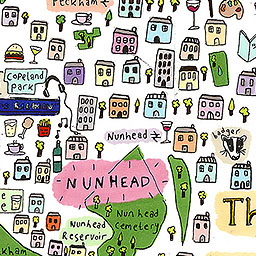 Peckham
Copeland
Park
Nunhead
Badger
NUNHEAD
Nunhead
Cemetery
Nunhead
Reservoir
Th
kham